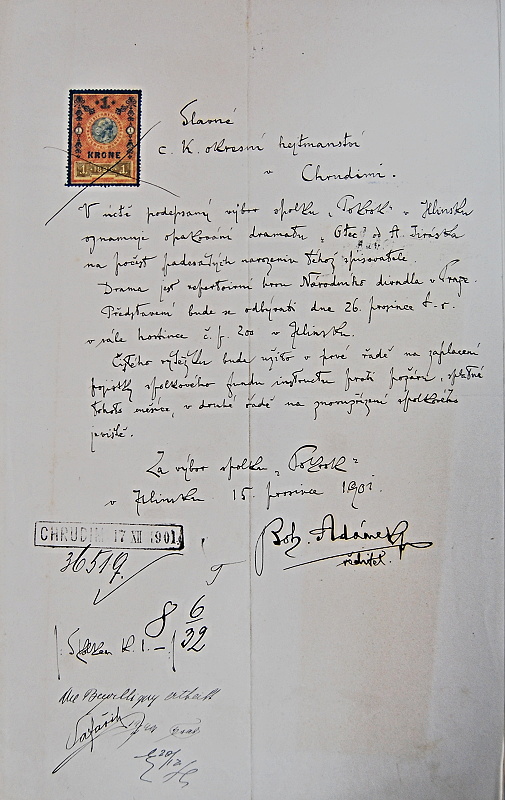 1
KRONE
1 1
Slavné
c. K. okresní hejtmanství
v Chrudimi.
V úctě podepsaný výbor spolku „Pokrok" v Hlinsku
oznamuje opakování dramatu „Otec" od A. Jiráska
na počest padesátých narozenin téhož spisovatele.
Drama jest repertoirní hrou Národního divadla v Praze.
Představení bude se odbývati dne 26. prosince t. r.
v sále hostince č. p. 200 v Hlinsku.
Čistého výtěžku bude užito v prvé řadě na zaplacení
pojistky spolkového fundu instructu proti požáru, splatné
tohoto měsíce, v druhé řadě na znovuzřízení spolkového
jeviště.
Za výbor spolku „Pokrok"
v Hlinsku 15. prosince 1901.
CHRUDIM 17 XII 1901
Boh. Adámek
ředitel.
36519.
8 6/32
K. 1.–